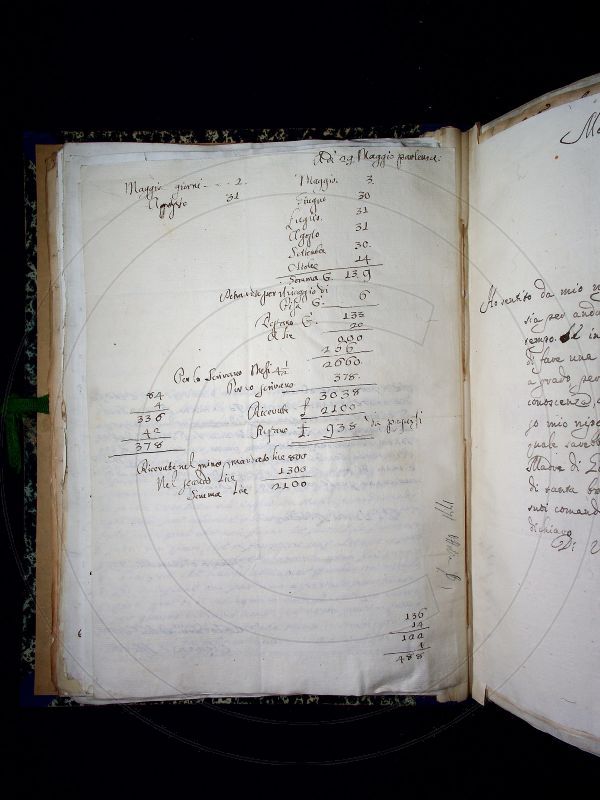 Adi 29 Maggio partenza.
Maggio giorni 2.
Agosto 31
Maggio. 3.
Giugno 30
Luglio. 31
Agosto 31
Settembre 30.
Ottobre 14
Somma G. 139
per il viaggio di
Pisa G. 6
Restano G. 133
A Lire 20
000
266
2660.
Per lo Scrivano Mesi 4 1/2
Per lo scrivano 378.
3038
Ricevute £ 2100
Restano £. 938 da pagarsi
84
4
336
42
378
Ricevute nel primo mandato lire 800
Nel secondo Lire 1300
Somma Lire 2100
136
14
122
4
488
Ho sentito da mio
sia per anda
tempo. Il in
di fare una
a grado per
conoscenza,
go mio rispe
quale sareb
Madre di
di santa
suoi comand
dichiaro
Di 2